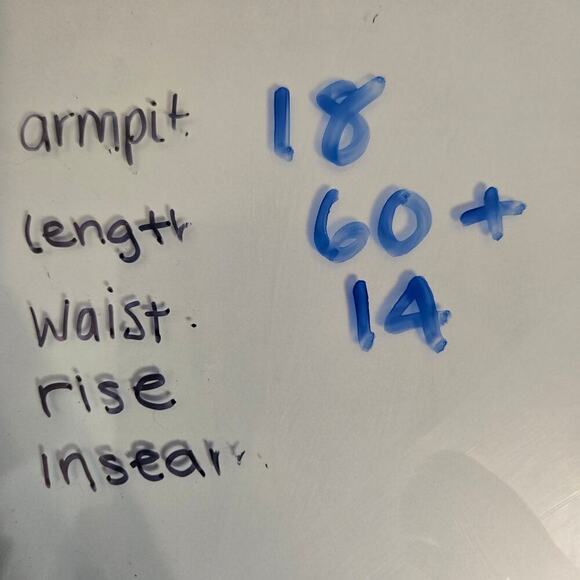 armpit 18
length 60+
waist 14
rise
inseam